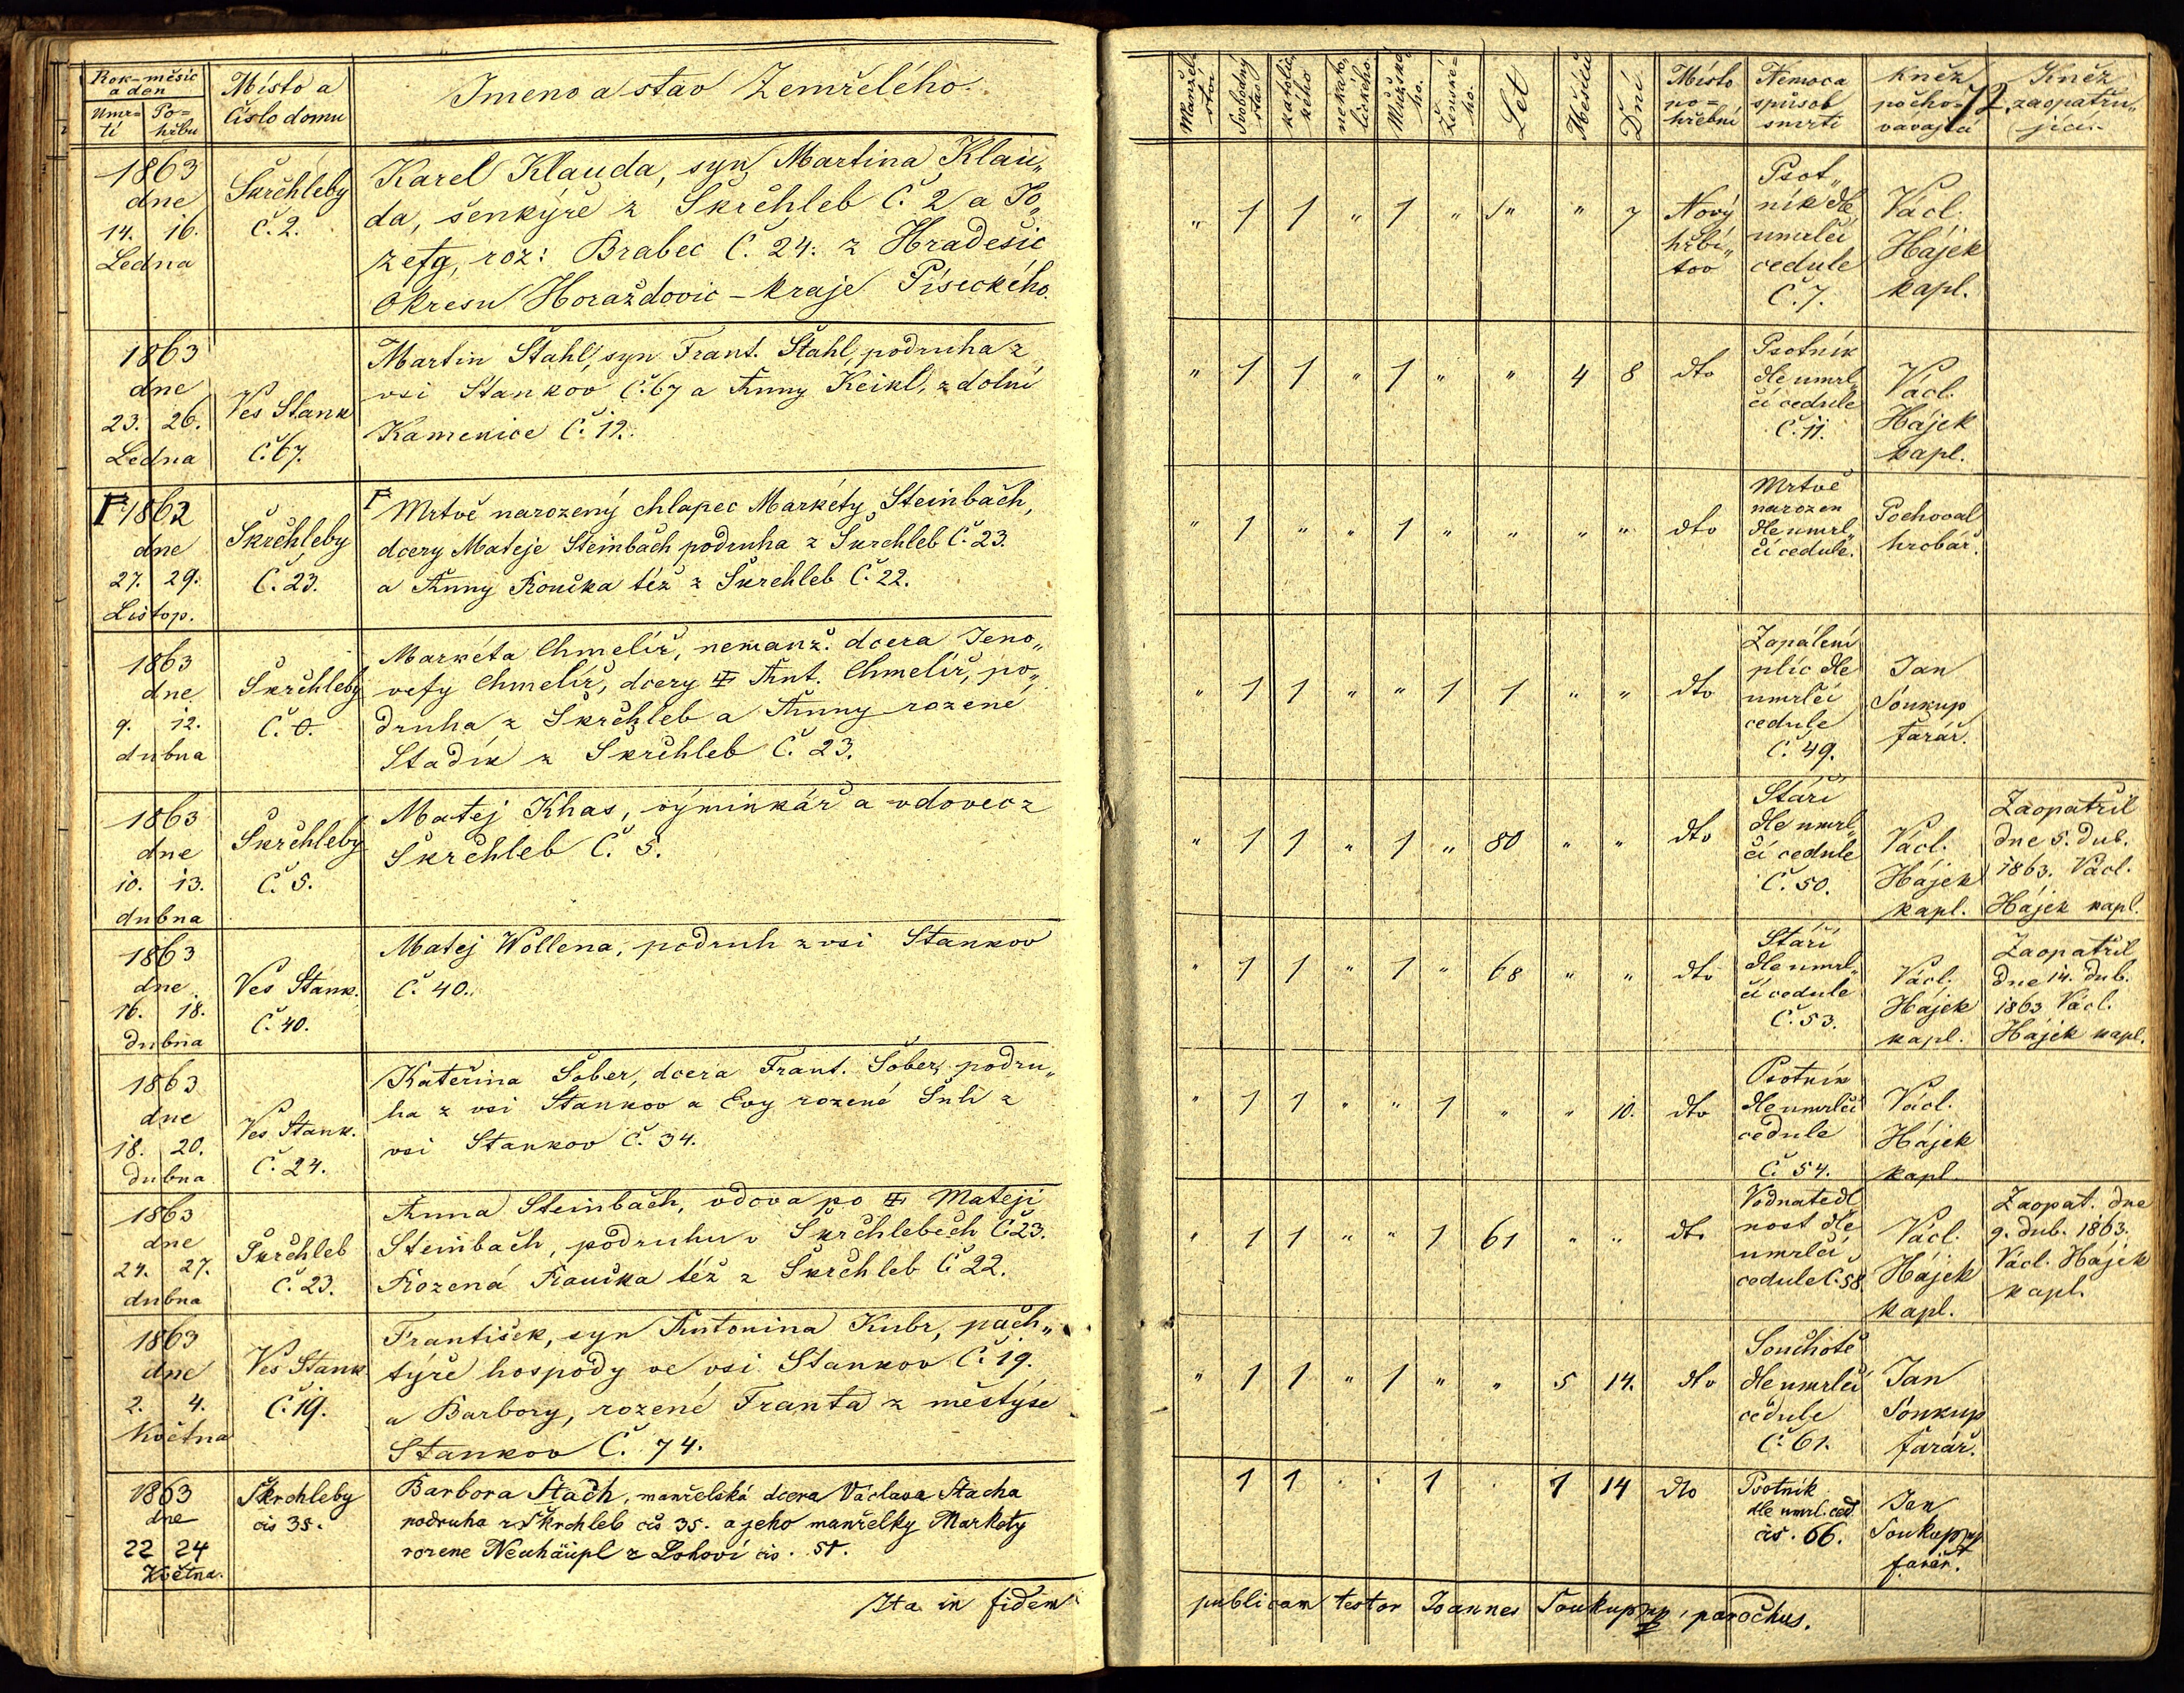 Rok-měsíc
a den
Umr=
tí
Po=
hřbu
Místo a
číslo domu
Jmeno a stav Zemřelého.
Manžel.
stav
Svobodný
stav
katolic
kého
nekato,
lického.
Mužské
ho.
Ženské=
ho.
Let
Měsíců
Dní
Místo
po=
hřební
Nemoc a
spůsob
smrti
Kněz
pocho=
vávající
72.
Kněz
zaopatřu,
jící.
1863
dne
14. 16.
Ledna
Skrchleby
Č. 2.
Karel Klauda, syn Martina Klau„
da, šenkýře z Skrchleb Č. 2 a Jo„
zefy, roz: Brabec Č. 24. z Hradešic
okresu Horaždovic – kraje Píseckého.
„ 1 1 „ 1 „ „ „ 7
Nový
hřbi„
tov
Psot„
ník dle
umrlčí
cedule
Č. 7.
Václ.
Hájek
kapl.
1863
dne
23. 26.
Ledna
Ves Stank
Č. 67.
Martin Stahl, syn Frant. Stahl, podruha z
vsi Stankov Č. 67 a Anny Keikl, z dolní
Kamenice Č. 12.
„ 1 1 „ 1 „ „ 4 8 dto
Psotník
dle umrl„
čí cedule
Č. 11.
Václ.
Hájek
kapl.
F 1862
dne
27. 29.
Listop.
Skrchleby
Č. 23.
F Mrtvě narozený chlapec Markéty Steinbach,
dcery Mateje Steinbach podruha z Skrchleb Č. 23.
a Anny Roučka též z Skrchleb Č. 22.
„ 1 „ „ 1 „ „ „ „ dto
Mrtvě
narozen
dle umrl„
čí cedule.
Pochoval
hrobář.
1863
dne
9. 12.
dubna
Skrchleby
Č. 0.
Markéta Chmelíř, nemanž. dcera Jeno„
vefy Chmelíř, dcery ✠ Ant. Chmelíř, po„
druha z Skrchleb a Anny rozené
Stadik z Skrchleb Č. 23.
„ 1 1 „ „ 1 1 „ „ dto
Zapálení
plic dle
umrlčí
cedule
Č. 49.
Jan
Soukup
farář.
1863
dne
10. 13.
dubna
Skrchleby
Č. 5.
Matej Khas, výminkář a vdovec z
Skrchleb Č. 5.
„ 1 1 „ 1 „ 80 „ „ dto
Stáří
dle umrl„
čí cedule
Č. 50.
Václ.
Hájek
kapl.
Zaopatřil
dne 5. dub.
1863. Václ.
Hájek kapl.
1863
dne
16. 18.
dubna
Ves Stank.
Č. 40.
Matej Wollena, podruh z vsi Stankov
Č. 40.
„ 1 1 „ 1 „ 68 „ „ dto
Stáří
dle umrl„
čí cedule
Č. 53.
Václ.
Hájek
kapl.
Zaopatřil
dne 14. dub.
1863 Václ.
Hájek kapl.
1863
dne
18. 20.
dubna
Ves Stank.
Č. 24.
Kateřina Šober, dcera Frant. Šober, podru„
ha z vsi Stankov a Evy rozené Suh z
vsi Stankov Č. 34.
„ 1 1 „ „ 1 „ „ 10. dto
Psotník
dle umrlčí
cedule
Č. 54.
Václ.
Hájek
kapl.
1863
dne
24. 27.
dubna
Skrchleb
Č. 23.
Anna Steinbach, vdova po ✠ Mateji
Steinbach, podruhu v Skrchlebech Č 23.
Rozená Raucka též z Skrchleb Č 22.
„ 1 1 „ „ 1 61 „ „ dto
Vodnatedl
nost dle
umrlčí
cedule Č. 58.
Václ.
Hájek
kapl.
Zaopat. dne
9. dub. 1863.
Václ. Hájek
kapl.
1863
dne
2. 4.
Května
Ves Stank.
Č. 19.
František, syn Antonina Kubr, pach„
týře hospody ve vsi Stankov Č. 19.
a Barbory, rozené Franta z městýse
Stankov Č. 74.
„ 1 1 „ 1 „ „ 5 14. dto
Souchotě
dle umrlčí
cedule
Č. 61.
Jan
Soukup
farář.
1863
dne
22 24
Května.
Škrchleby
čís 35.
Barbora Stach, manželská dcera Václava Stacha
podruha z Škrchleb čís 35. a jeho manželky Markety
rozene Neuhäupl z Lohoví čís. 51.
1 1 . . 1 . 1 14 dto
Psotník
dle umrl. ced.
čís. 66.
Jan
Soukup mp
farář.
Ita in fidem
publicam testor Joannes Soukup mp, parochus.